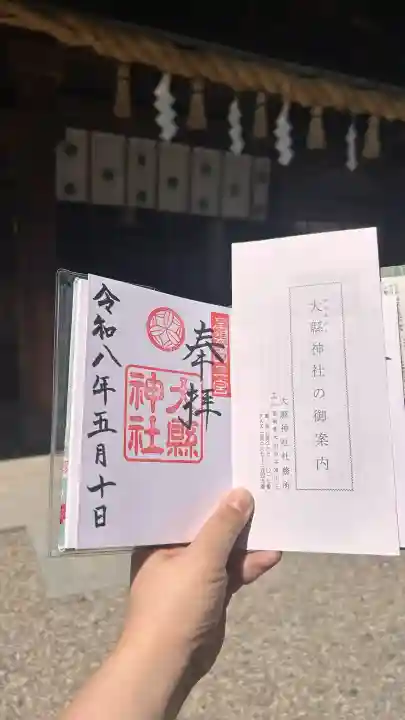 奉拝
大縣神社
令和八年五月十日
大縣神社の御案内
大縣神社社務所